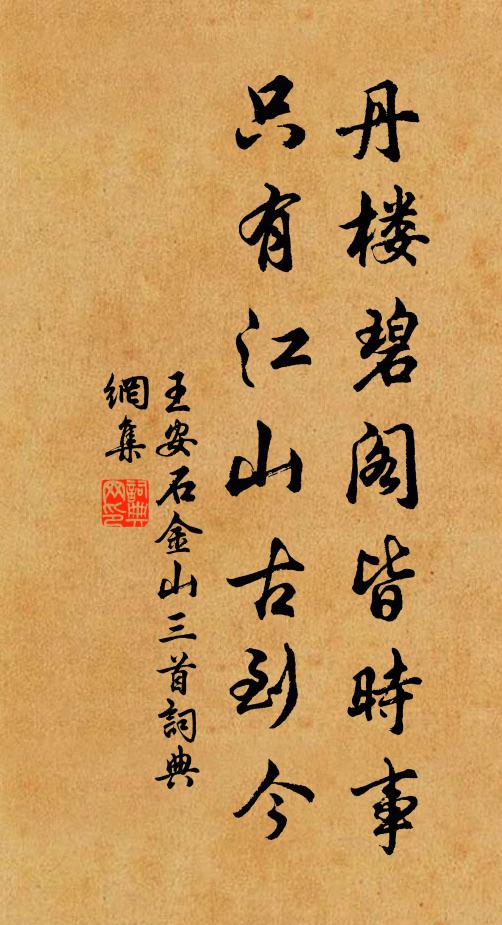 丹楼碧阁皆時事
只有江山古到今
王安石金山三首詞典
網集
詞典網印